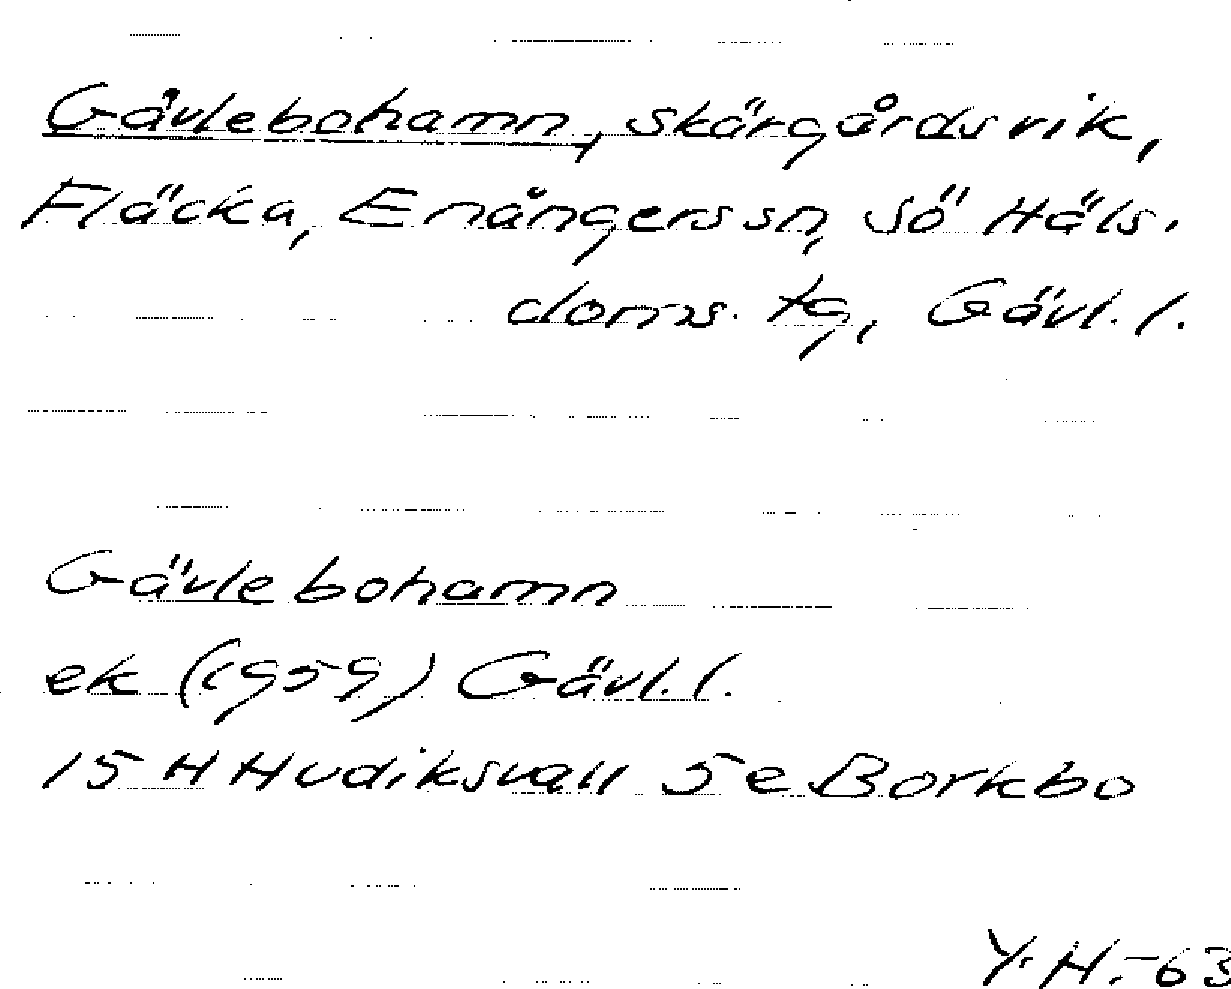 Gävlebohamn, skärgårdsvik,
Fläcka, Enångers sn, Sö Häls.
doms. tg, Gävl. l.
Gävlebohamn
ek (1959) Gävl. l.
15 H Hudiksvall 5e Borkbo
Y. H. -63